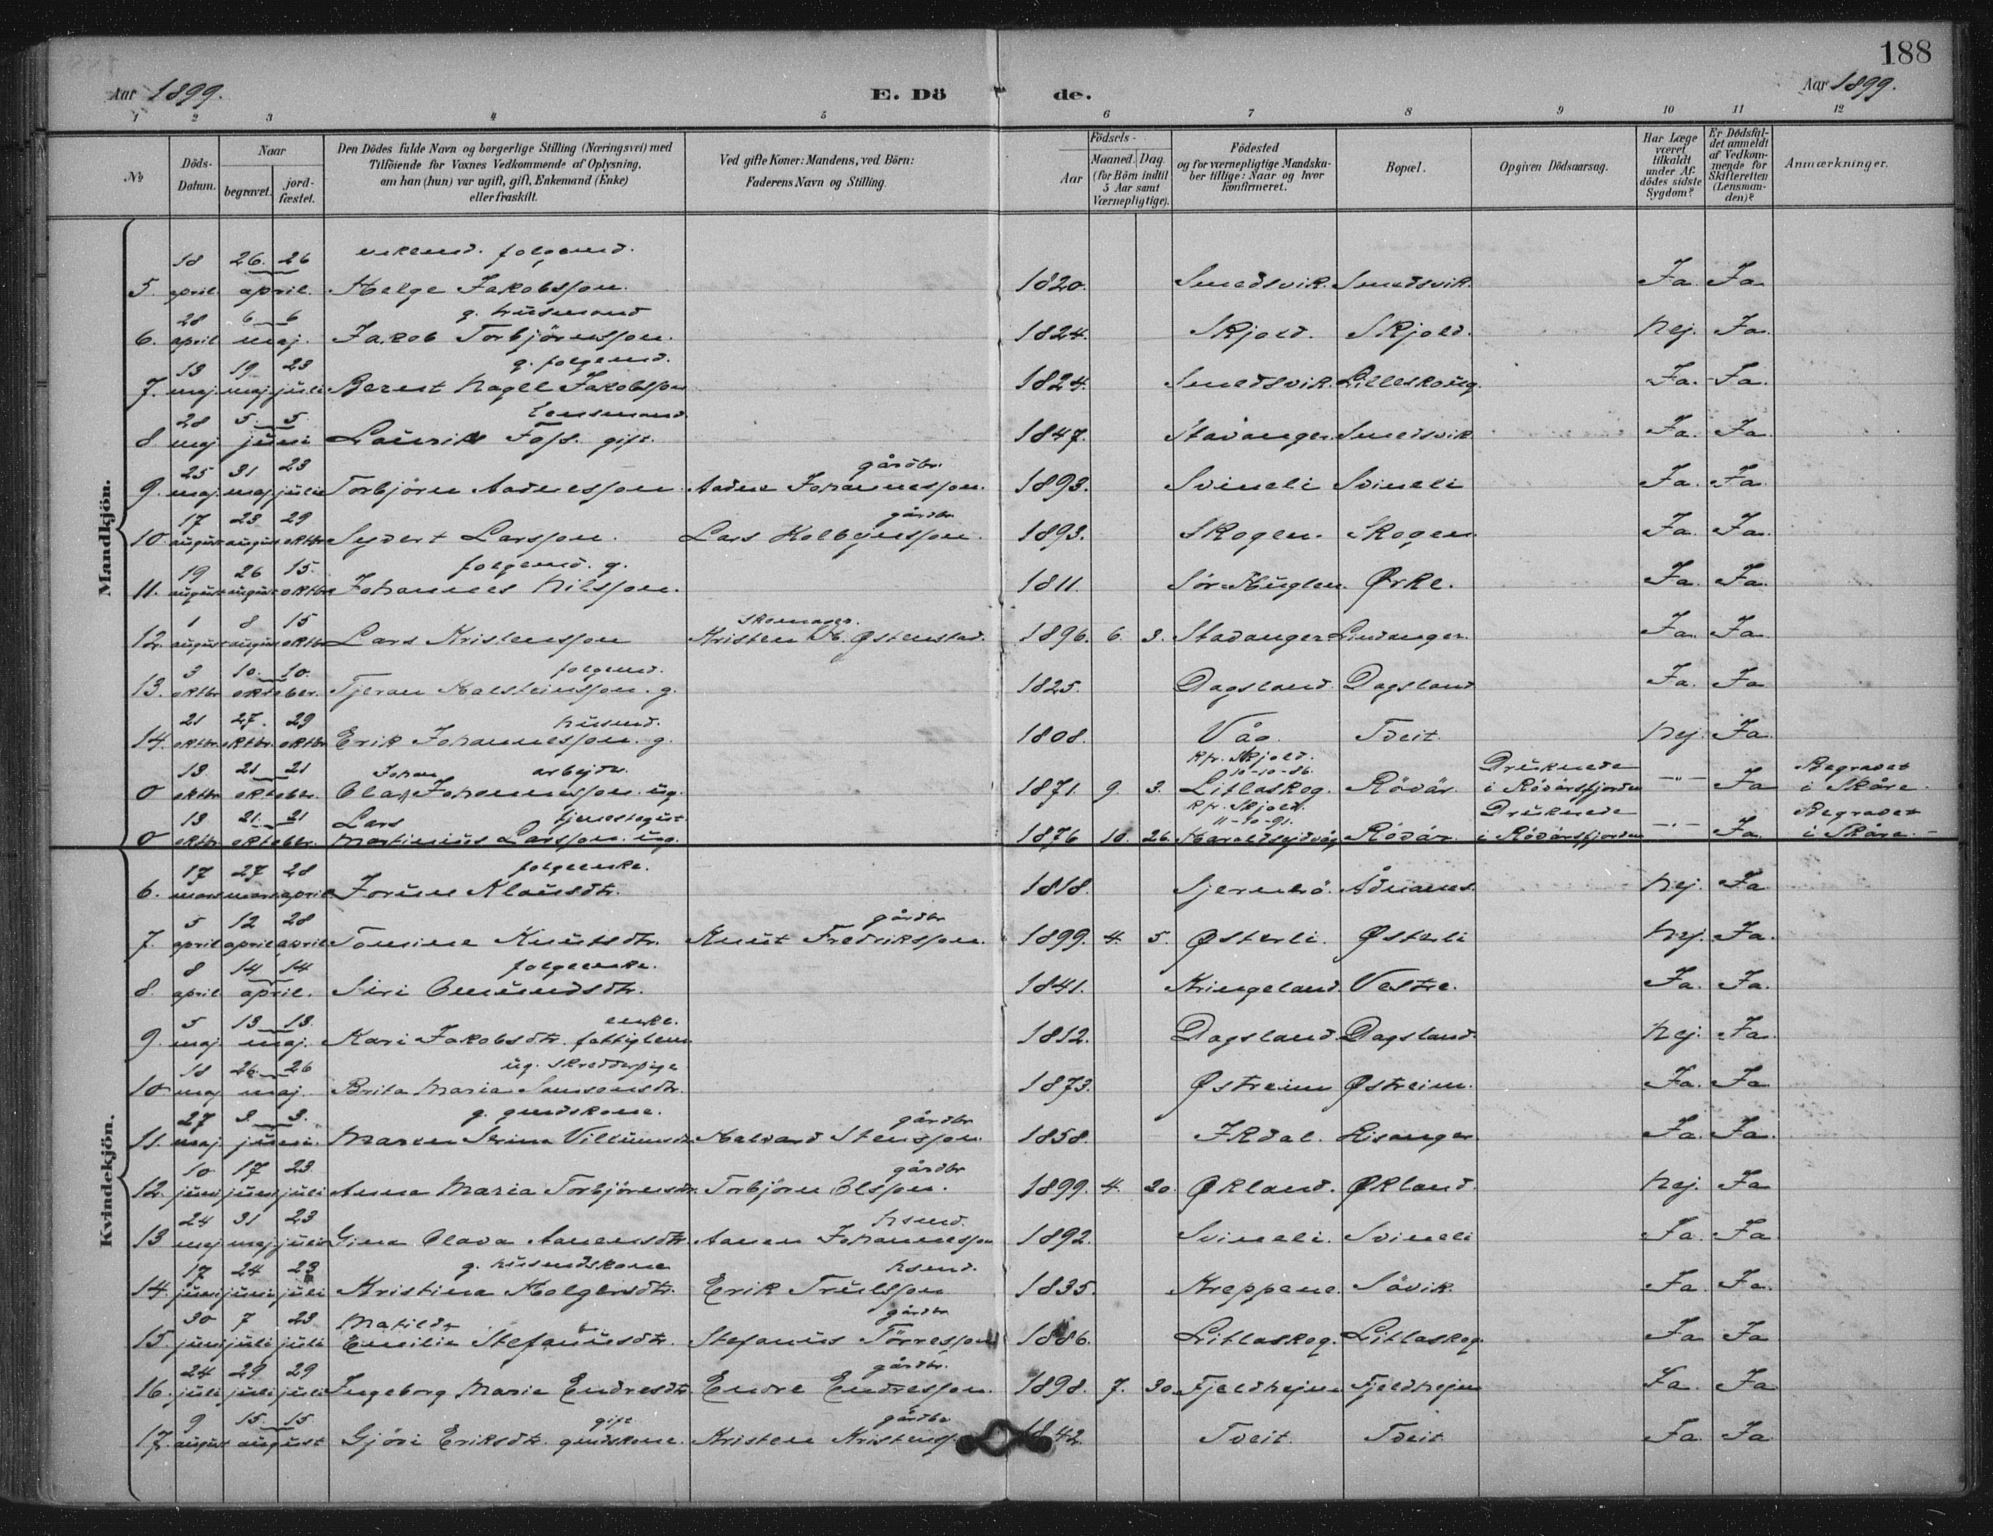 188
Aar 1899. E. Dö de. Aar 1899.
1 2 3 4 5 6 7 8 9 10 11 12
No
Döds-Datum.
Naar
begravet.
jordfæstet.
Den Dödes fulde Navn og borgerlige Stilling (Næringsvei) med
Tilföiende for Voxnes Vedkommende af Oplysning,
om han (hun) var ugift, gift, Enkemand (Enke)
eller fraskilt.
Ved gifte Koner: Mandens, ved Börn:
Faderens Navn og Stilling.
Födsels-
Aar
Maaned. Dag.
(for Börn indtil
5 Aar samt
Værnepligtige).
Födested
og for værnepligtige Mandskaber
tillige: Naar og hvor
konfirmeret.
Bopæl.
Opgiven Dödsaarsag.
Har Læge
været
tilkaldt
under Afdödes
sidste
Sygdom?
Er Dödsfaldet
anmeldt
af Vedkommende
for
Skifteretten
(Lensmanden)?
Anmærkninger.
Mandkjön.
18 26. 26 enkemd. folgemd.
5. april april. Helge Jakobsson. 1820. Smedsvik. Smedsvik. Ja. Ja
28 6 6 g. husmand
6. april maj. Jakob Torbjörnsson. 1824. Skjold. Skjold. Nej. Ja.
13 19. 23 g. folgemd.
7. maj maj juli Berent Nagel Jakobsson 1824. Smedsvik. Lilleskoug. Ja. Ja.
28 5. 5. Lensmand
8 maj juni Lauriks Foss. gift. 1847. Stavanger Smedsvik Ja. Ja.
25 31 23 gårdbr.
9. maj. maj julie Torbjörn Aadnesson Aadne Johannesson. 1893. Svineli Svineli Ja. Ja.
17 23 29 gårdbr
10. august august oktbr Sydert Larsson. Lars Kolbeinsson. 1893. Skogen. Skogen. Ja. Ja.
19 26 15. folgemd. g.
11. august august oktbr Johannes Nilsson. 1811. Sör Huglen. Ørke. Ja. Ja.
1 8 15 skomager.
12. august august oktbr Lars Kristensson Kristen Østenstad. 1896. 6. 3. Stavanger Lindanger. Ja. Ja.
3 10. 10. folgemd.
13. oktbr oktober. Tjeran Halsteinsson. g. 1825. Dagsland. Dagsland Ja. Ja
21 27. 29 husmd.
14. oktbr. oktbr. oktbr Erik Johannesson. g. 1808. Våg. Tveit. Nej. Ja.
13. 21 21 Johan arbejdr. Kfr. Skjold. 10-10-86. Druknede Begravet
0 oktbr oktobr. Olaf Johannesson. ug. 1871. 9. 3. Litlaskog. Rövär. i Rövärsfjorden -"- Ja i Skåre.
13 21. 21 Lars tjenestegut Kfr. Skjold. 11-10-91. Druknede Begravet
0 oktbr oktobr. Martinius Larsson. ug. 1876 10. 26. Haraldseidvåg Rövär. i Rövärsfjorden -"- Ja. i Skåre.
Kvindekjön.
17 27 28 folgeenke.
6. mars mars april Jorunn Klausdtr. 1818. Ådnanes. Nej. Ja
5 12 28 gårdbr
7. april april april Tomine Knutsdtr. Knut Fredriksson. 1899. 4. 5. Østerli. Østerli Nej. Ja.
8 14 14 folgeenke.
8. april april. Siri Omundsdtr. 1841. Kringeland. Vestre. Ja. Ja.
5 13 13. enke.
9. maj maj. Kari Jakobsdtr. fattiglem 1812. Dagsland. Dagsland. Nej. Ja.
18 26. 26 ug. skredderpige
10 maj maj. Brita Maria Samsonsdtr. 1873. Østreim Østreim. Ja. Ja
27 3 3. g. gmdskone. gårdbr
11. maj. juni. Maren Serina Villumsdtr Halvard Stensson. 1858. Ikdal. Lisanger Ja. Ja.
10 17 23. gårdbr
12. juni juni juli Anna Maria Torbjörnsdtr. Torbjörn Olsson. 1899. 4. 20. Økland. Økland. Nej. Ja
24 31 23 hsmd.
13 maj maj julie Gina Olava Aanensdtr. Aanen Johannesson 1892. Svineli. Svineli Ja. Ja.
17 24 23 g. husmdskone hsmd.
14. juni juni juli Kristina Holgersdtr. Erik Trulsson 1835. Kreppene. Sövik. Ja. Ja.
30 7 23 Matilde gårdbr
15. juni juli juli Emilie Stefanusdtr. Stefanus Törresson 1886. Litlaskog. Litlaskog Ja. Ja
24 29 29 gårdbr.
16. juli juli juli Ingeborg Marie Endresdtr. Endre Endresson. 1898. 7. 30. Fjeldhejm Fjeldhejm Ja. Ja
9 15. 15. gift gårdbr
17. august august Gjöri Eriksdtr. gmdskone. Kristen 1842. Tveit. Tveit Ja. Ja